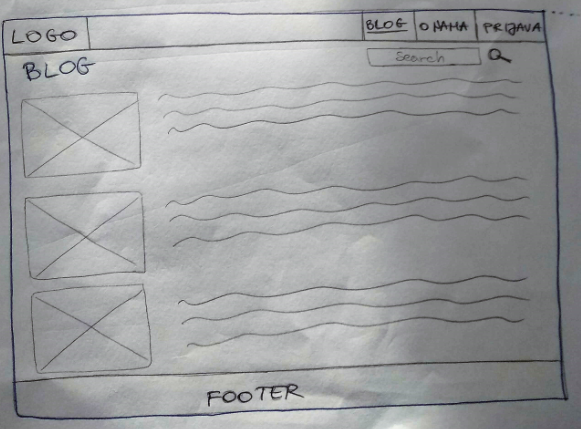 LOGO
BLOG
O NAMA
PRIJAVA
BLOG
Search
FOOTER